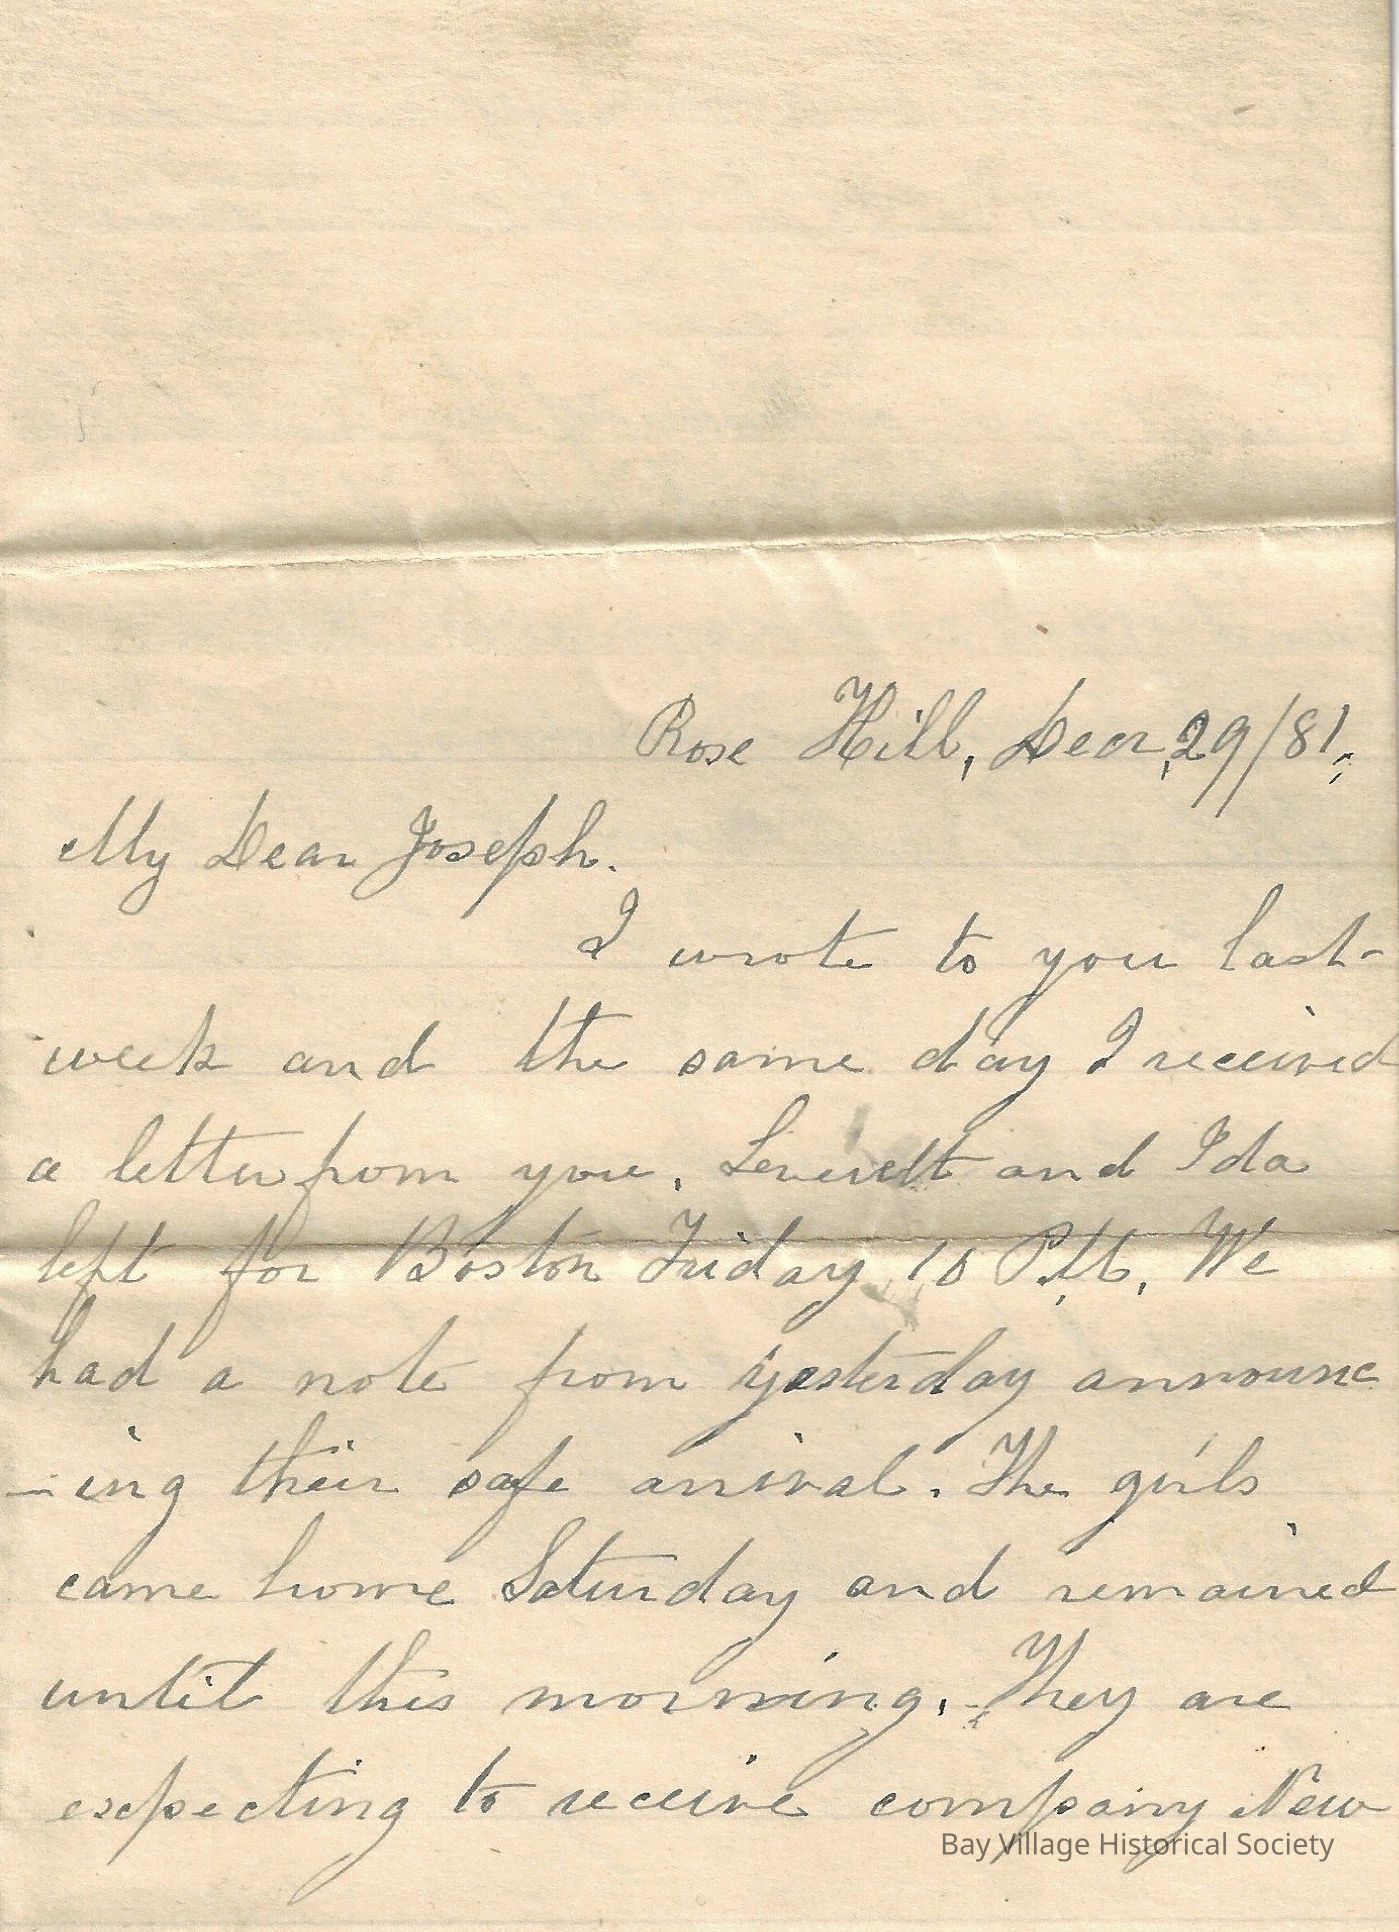 Rose Hill, Decr, 29/81.
My Dear Joseph.
I wrote to you last
week and the same day I received
a letter from you. Leverett and Ida
left for Boston Friday 10 P.M. We
had a note from yesterday announc
-ing their safe arrival. The girls
came home Saturday and remained
until this morning. They are
expecting to receive company New
Bay Village Historical Society